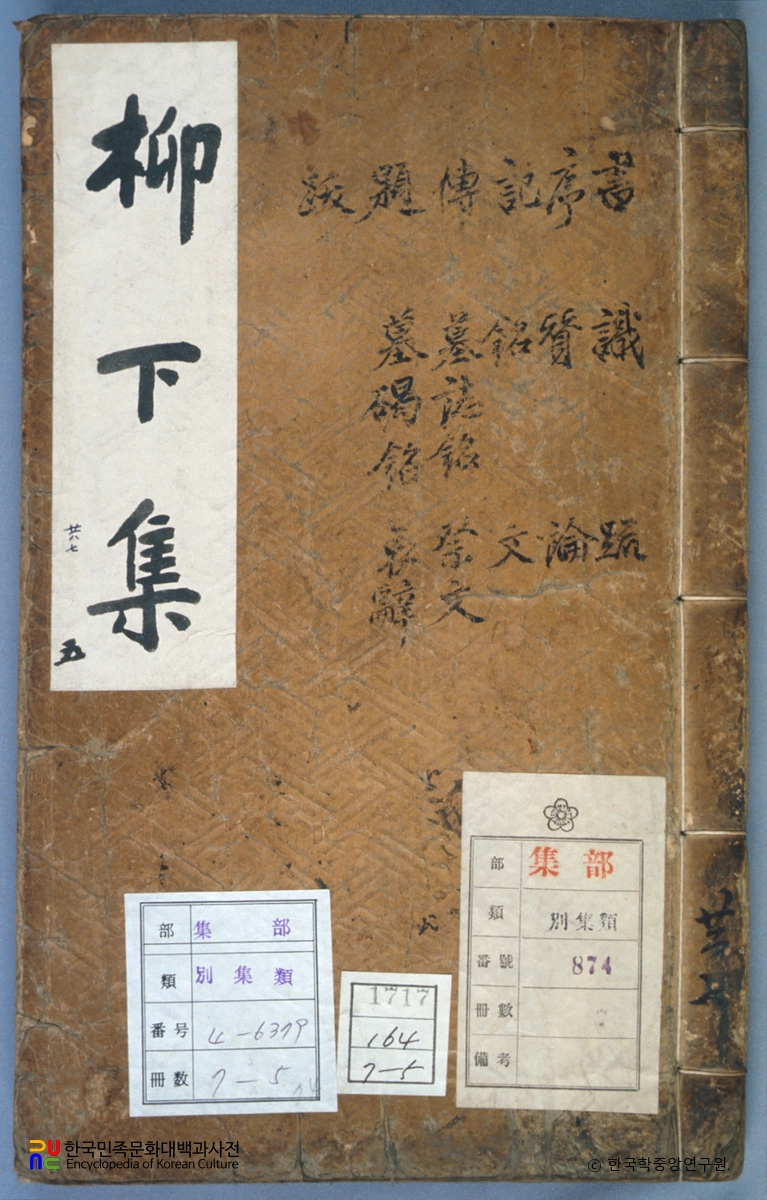 柳下集
五
書 序 記 傳 題 跋
識 贊 銘 墓誌銘 墓碣銘
疏 論 文 祭文 哀辭
部 集部
類 別集類
番號 874
冊數
備考
部 集部
類 別集類
番号 4-6379
冊数 7-5
1717
164
7-5
한국민족문화대백과사전
Encyclopedia of Korean Culture
© 한국학중앙연구원.